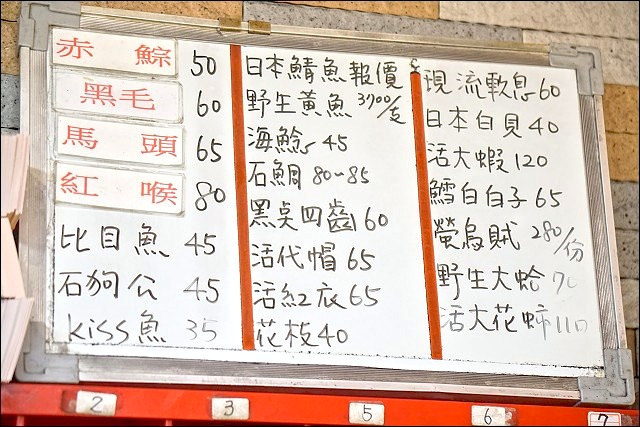 赤鯮 50
黑毛 60
馬頭 65
紅喉 80
比目魚 45
石狗公 45
Kiss魚 35
日本鯖魚報價
野生黃魚 3700/支
海鯰 45
石鯛 80~85
黑桌四齒 60
活代帽 65
活紅衣 65
花枝 40
現流軟息 60
日本白貝 40
活大蝦 120
鱈白白子 65
螢烏賊 280/份
野生大蛤 70
活大花蚵 110
2
3
5
6
7